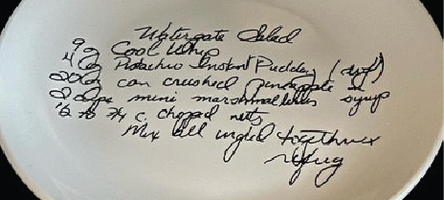 Watergate Salad
9 oz Cool Whip
4 oz Pistachio Instant Pudding (
20 oz can crushed pineapple in syrup
2 cups mini marshmallows
½ to ¾ c. chopped nuts
Mix all ingred together